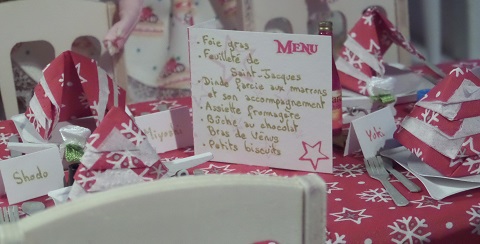 MENU
- Foie gras
- Feuilleté de
Saint-Jacques
- Dinde farcie aux marrons
et son accompagnement
- Assiette fromagère
- Bûche au chocolat
Bras de Vénus
- Petits biscuits
Shado
Miyost
Yuki